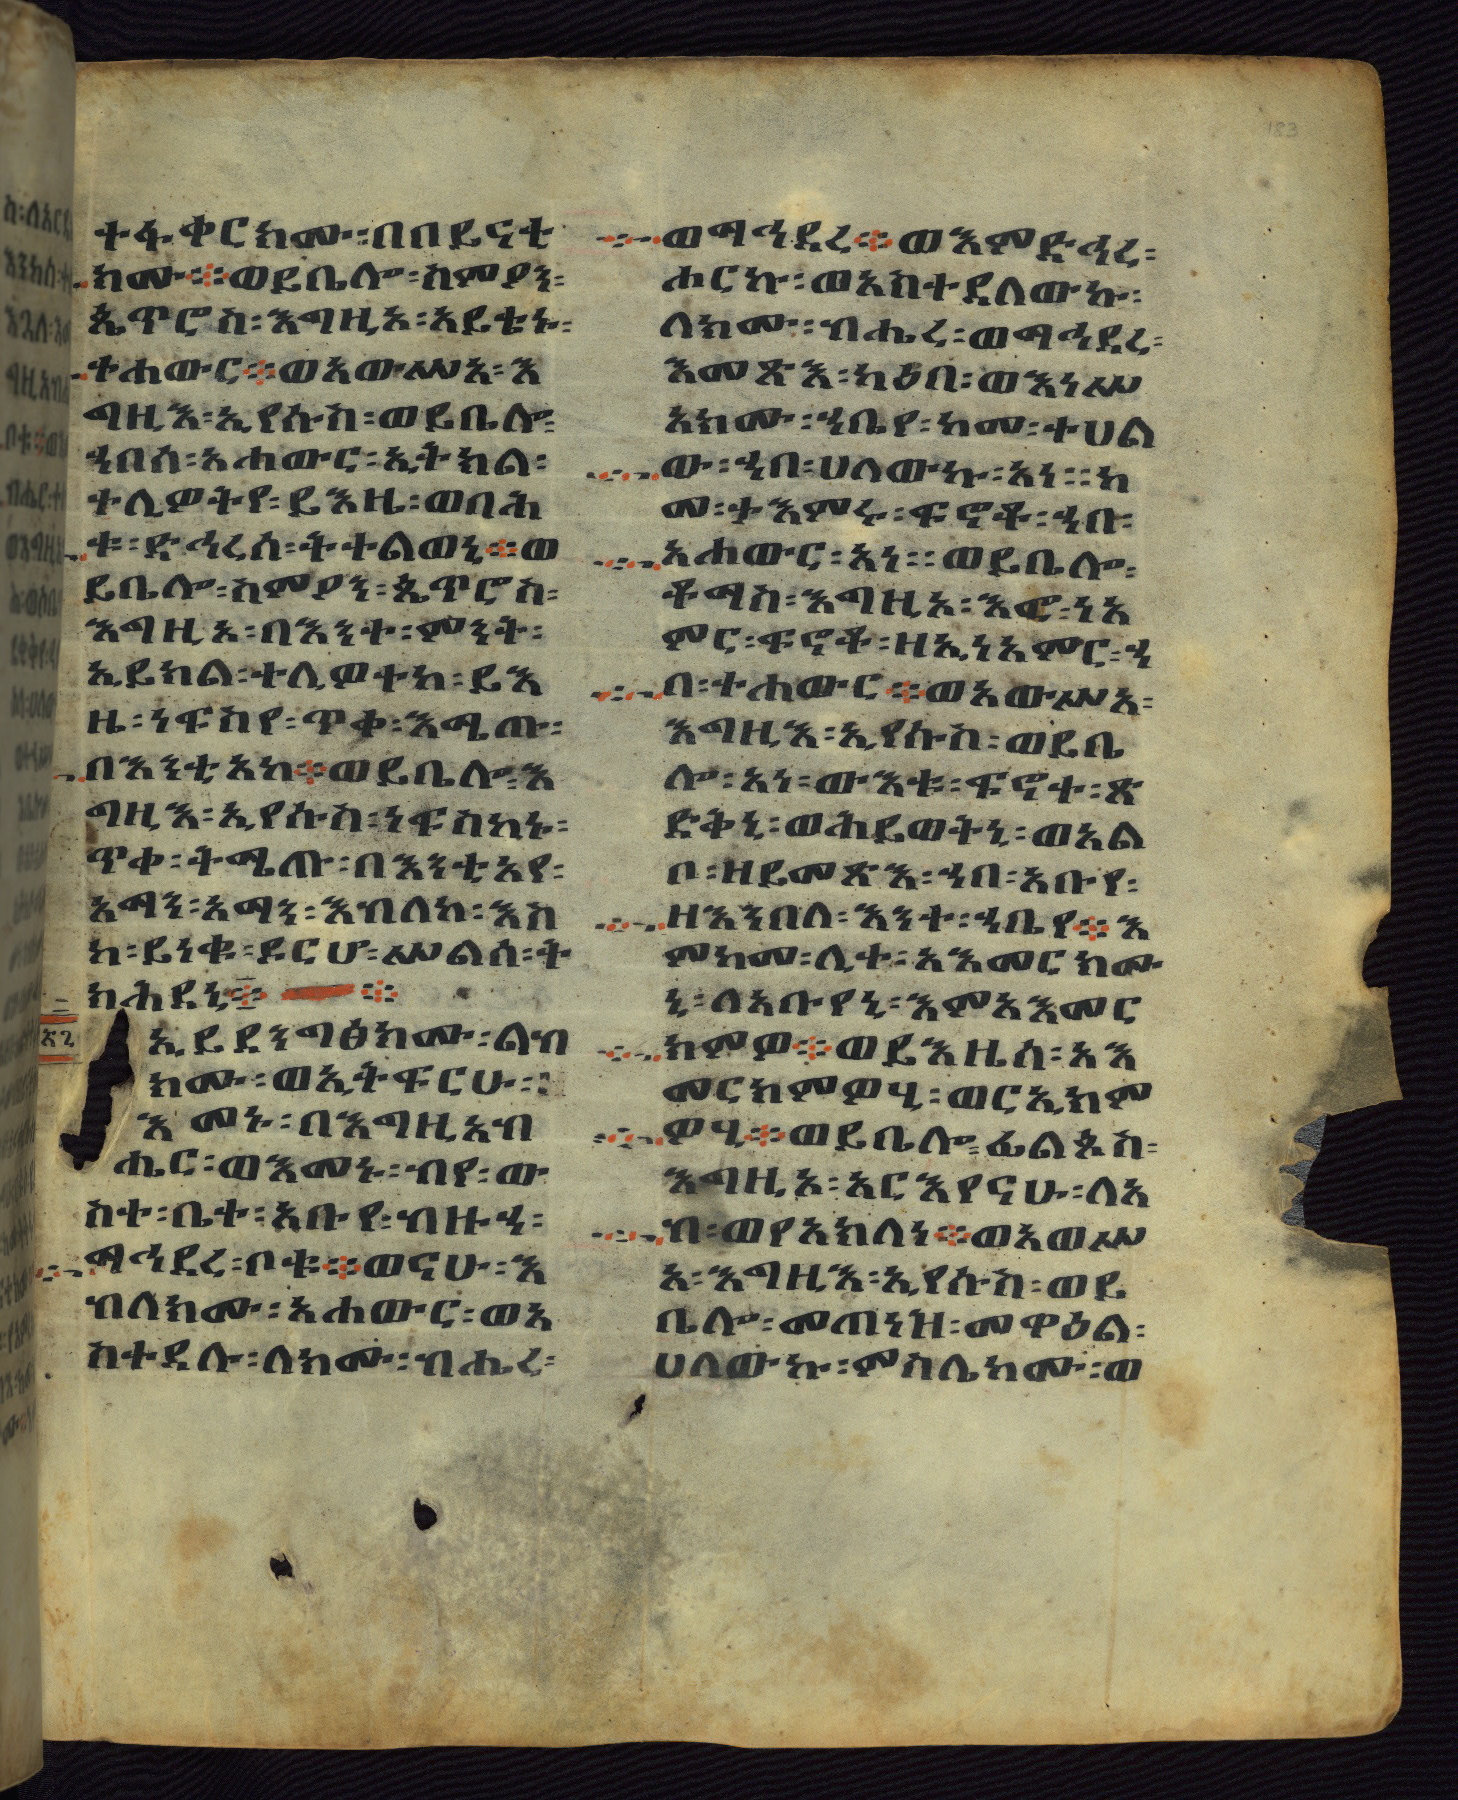 183
ተፋቀርክሙ፡በበይናቲ
ክሙ፨ወይቤሎ፡ስምዖን፡
ጴጥሮስ፡እግዚኦ፡አይቴኑ፡
ተሐውር፨ወአውሥአ፡እ
ግዚእ፡ኢየሱስ፡ወይቤሎ፡
ኀበሰ፡አሐውር፡ኢትክል፡
ተሊዎትየ፡ይእዜ፡ወባሕ
ቱ፡ድኅረሰ፡ትተልወኒ፨ወ
ይቤሎ፡ስምዖን፡ጴጥሮስ፡
እግዚኦ፡በእንተ፡ምንት፡
ኢይክል፡ተሊዎተከ፡ይእ
ዜ፡ነፍስየ፡ጥቀ፡እሜጡ፡
በእንቲአከ፨ወይቤሎ፡እ
ግዚእ፡ኢየሱስ፡ነፍስከኑ፡
ጥቀ፡ትሜጡ፡በእንቲአየ፡
አማን፡አማን፡እብለከ፡እስ
ከ፡ይነቁ፡ዶርሆ፡ሥልሰ፡ት
ክሕደኒ፨ ፨
፳፯
ኢይደንግፅክሙ፡ልብ
ክሙ፡ወኢትፍርሁ፡፡
እመኑ፡በእግዚአብ
ሔር፡ወእመኑ፡ብየ፡ው
ስተ፡ቤተ፡አቡየ፡ብዙኅ፡
ማኅደረ፡ቦቱ፨ወናሁ፡እ
ብለክሙ፡አሐውር፡ወአ
ስተዴሉ፡ለክሙ፡ብሔረ፡
ወማኅደረ፨ወእምድኅረ፡
ሐርኩ፡ወአስተዴለውኩ፡
ለክሙ፡ብሔረ፡ወማኅደረ፡
እመጽእ፡ካዕበ፡ወእነሥ
አክሙ፡ኀቤየ፡ከመ፡ተሀል
ው፡ኀበ፡ሀለውኩ፡አነ፡፡ከ
መ፡ታእምሩ፡ፍኖቶ፡ኀበ፡
አሐውር፡አነ፡፡ወይቤሎ፡
ቶማስ፡እግዚኦ፡እፎ፡ነአ
ምር፡ፍኖቶ፡ዘኢነአምር፡ኀ
በ፡ተሐውር፨ወአውሥአ፡
እግዚእ፡ኢየሱስ፡ወይቤ
ሎ፡አነ፡ውእቱ፡ፍኖተ፡ጽ
ድቅኒ፡ወሕይወትኒ፡ወአል
ቦ፡ዘይመጽእ፡ኀበ፡አቡየ፡
ዘእንበለ፡እንተ፡ኀቤየ፨እ
ምከመ፡ሊተ፡አእመርክሙ
ኒ፡ለአቡየኒ፡እምአእመር
ክምዎ፨ወይእዜሰ፡አእ
መርክምዎሂ፡ወርኢክም
ዎሂ፨ወይቤሎ፡ፊልጶስ፡
እግዚኦ፡አርእየናሁ፡ለአ
ብ፡ወየአክለነ፨ወአወሥ
አ፡እግዚእ፡ኢየሱስ፡ወይ
ቤሎ፡መጠነዝ፡መዋዕል፡
ሀለውኩ፡ምስሌክሙ፡ወ